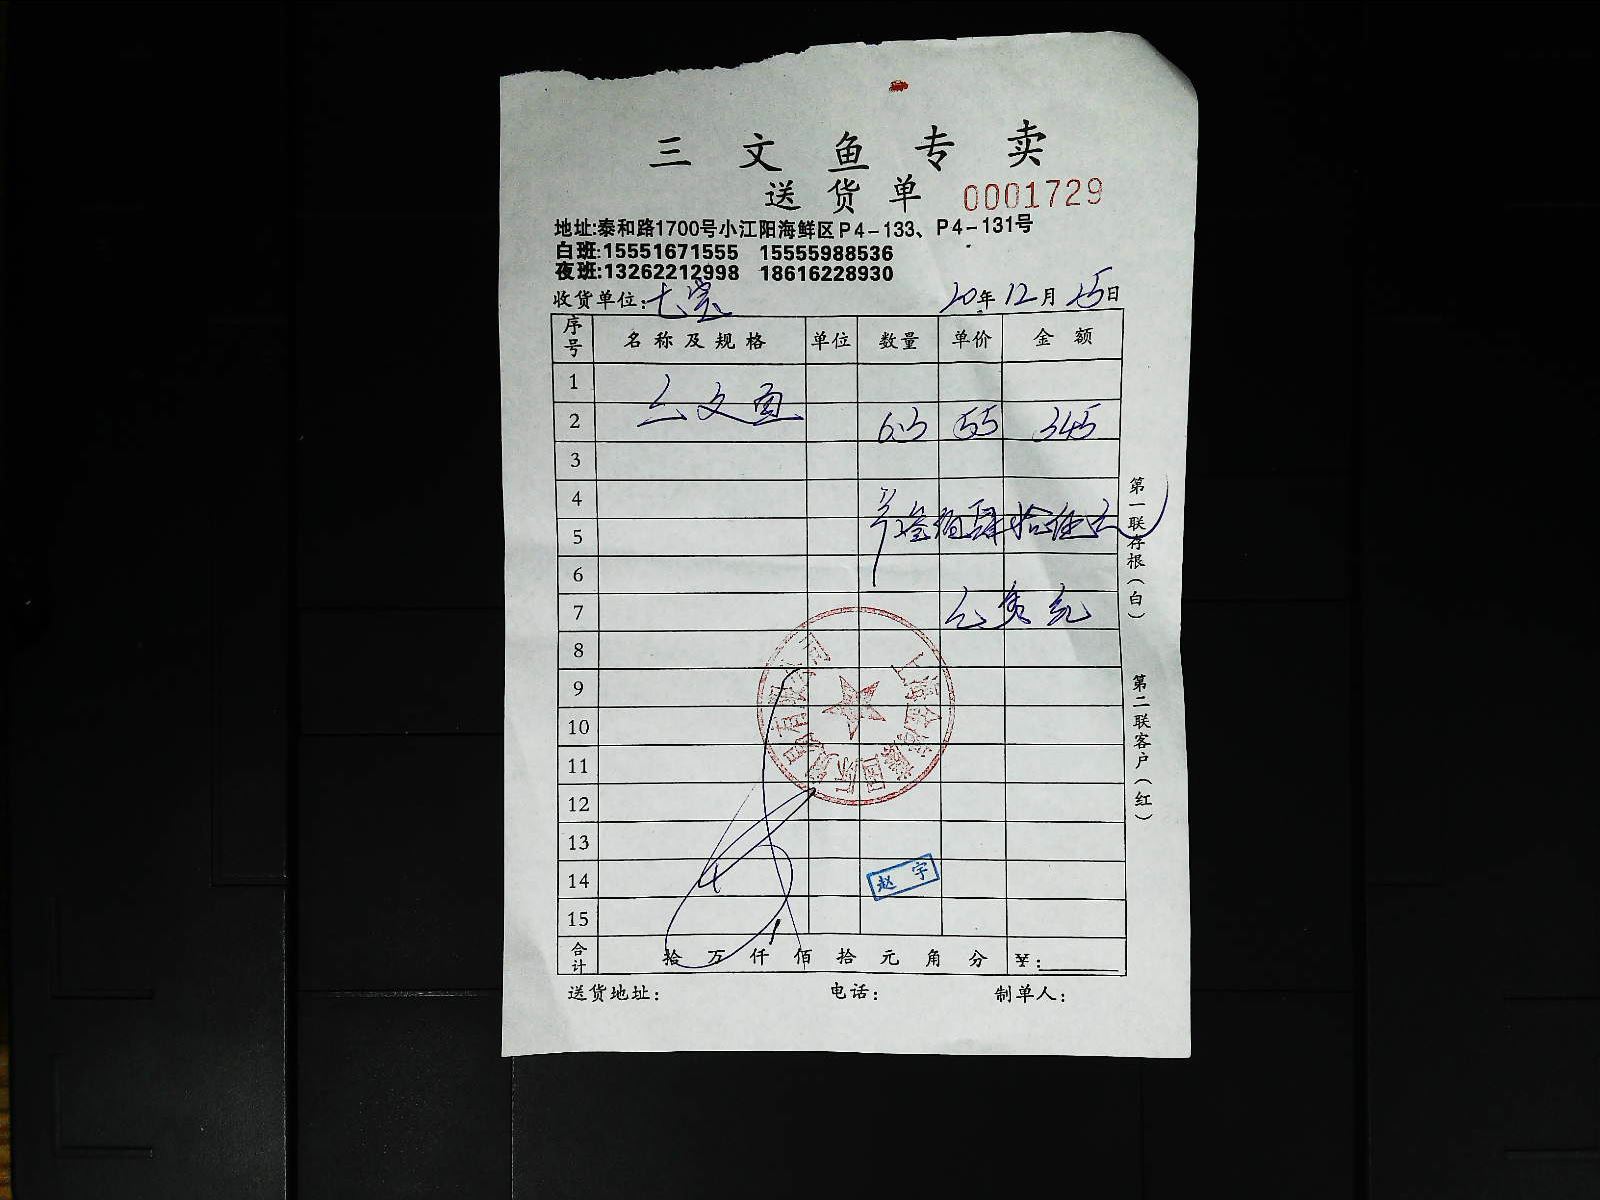 三文鱼专卖
送货单 0001729
地址:泰和路1700号小江阳海鲜区P4-133、P4-131号
白班:15551671555 15555988536
夜班:13262212998 18616228930
收货单位: 20年12月25日
序号 名称及规格 单位 数量 单价 金额
1 三文鱼
2 6.3 55 345
3
4
5 叁佰肆拾伍元
6
7
8
9
10
11
12
13
14 赵宇
15
合计 拾万仟佰拾元角分 ¥:
送货地址: 电话: 制单人:
第一联存根(白)
第二联客户(红)